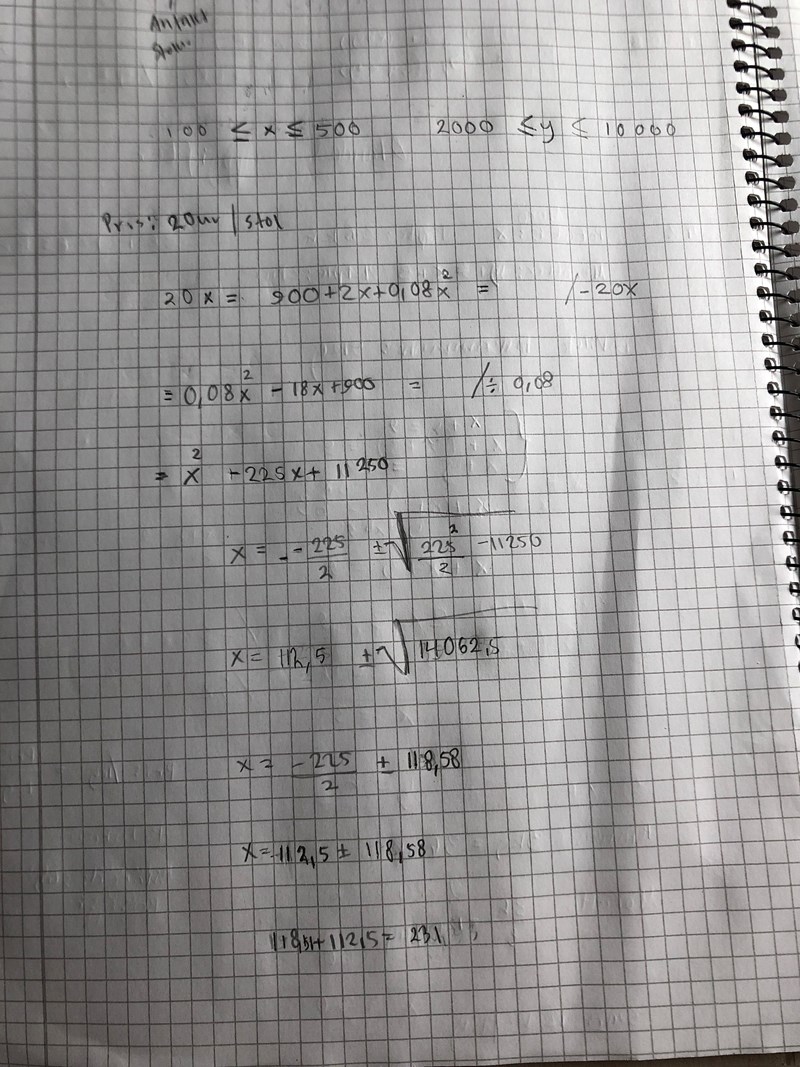 Antal
100 ≤ x ≤ 500 2000 ≤ y ≤ 10000
Pris: 20 / stol
20x = 900+2x+0,08x² = /-20x
= 0,08x² - 18x+900 = /÷ 0,08
= x² - 225x + 11250
x = - -225/2 ± √(225²/2 - 11250)
x = 112,5 ± √14062,5
x = -225/2 ± 118,58
x = -112,5 ± 118,58
118,51+112,5 = 231